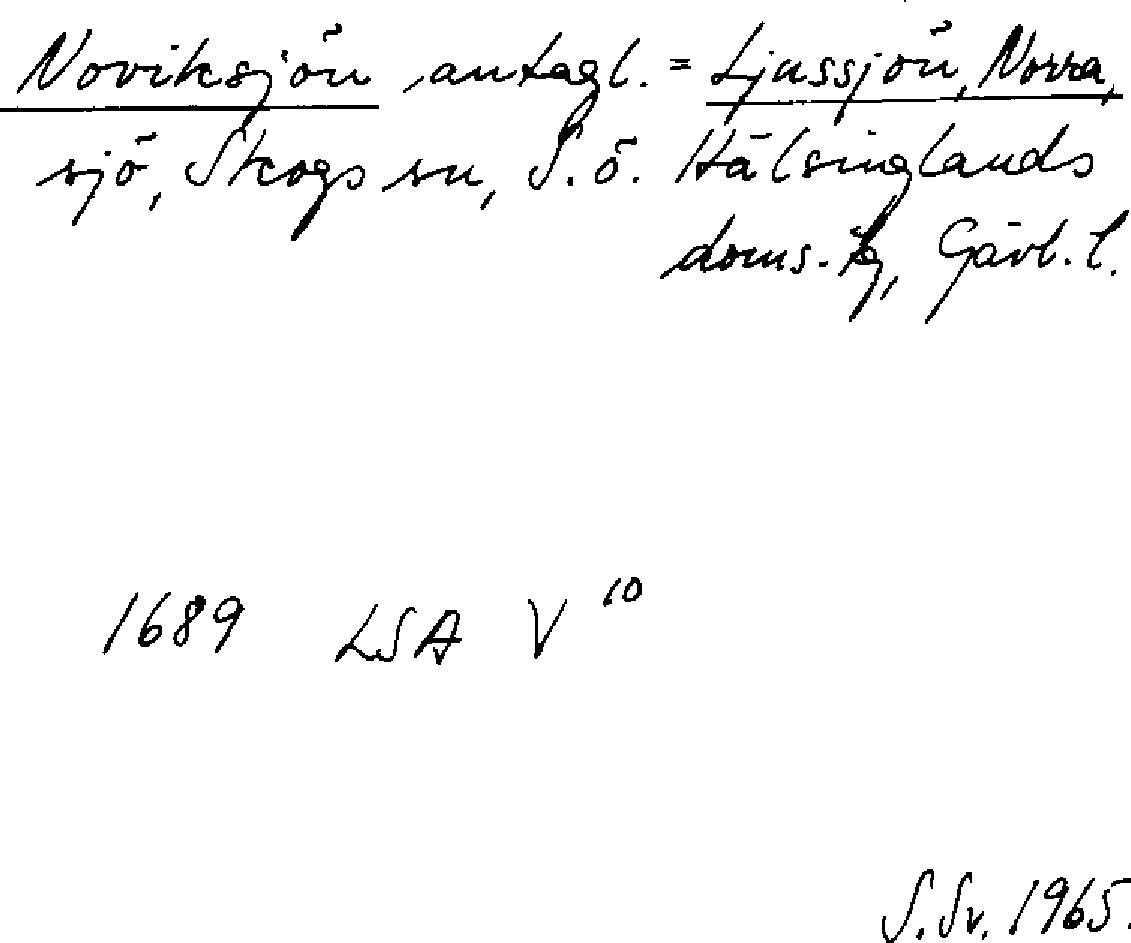 Noviksjön antagl. = Ljussjön, Norra,
sjö, Skogs sn, S.ö. Hälsinglands
doms. tg, Gävl. l.
1689 LSA V 10
S. Sv. 1965.